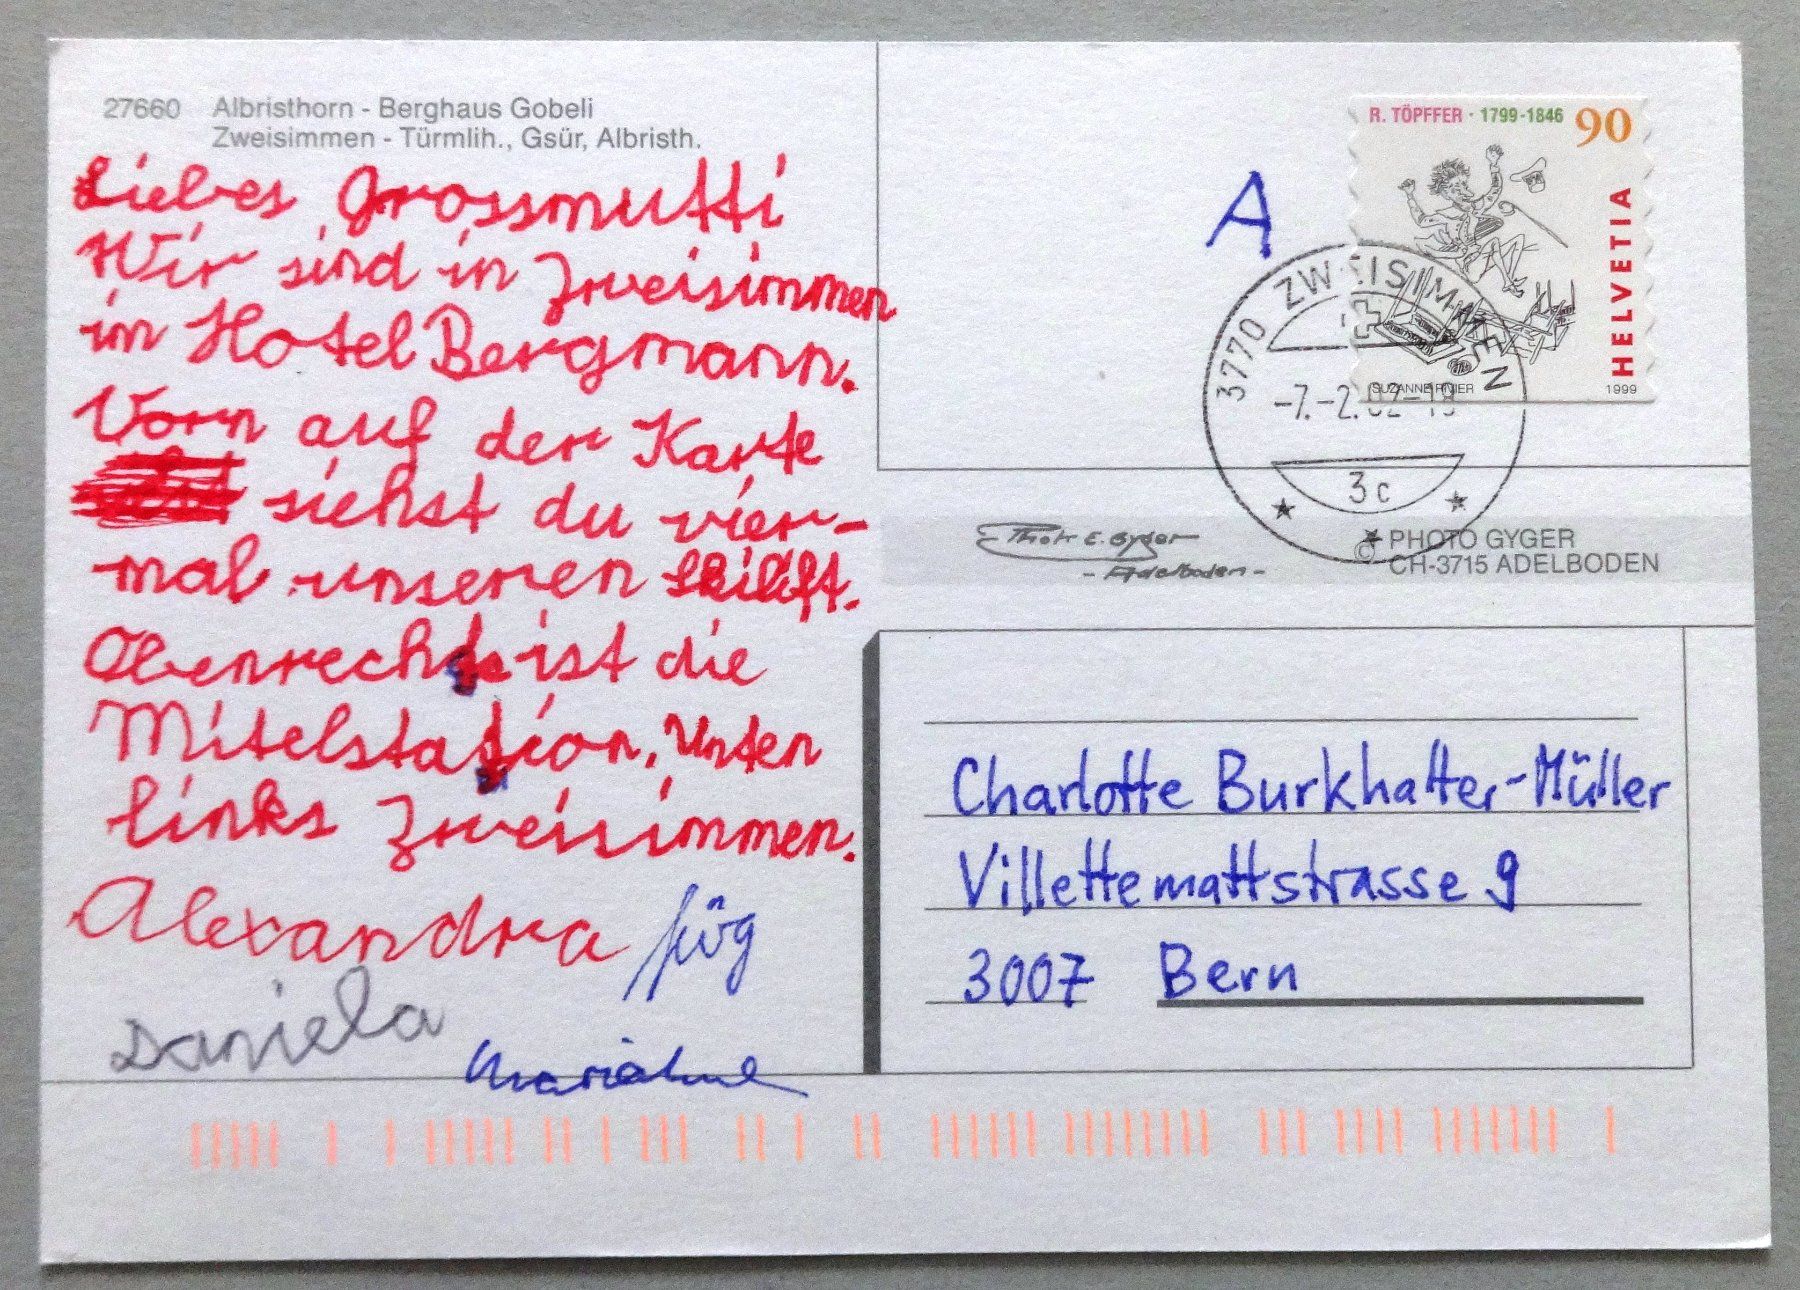 27660 Albristhorn - Berghaus Gobeli
Zweisimmen - Türmlih., Gsür, Albristh.
Liebes Grossmutti
Wir sind in Zweisimmen
im Hotel Bergmann.
Vorn auf der Karte
siehst du vier-
mal unseren Skilift.
Obenrechts ist die
Mitelstation. Unten
links Zweisimmen.
Alexandra Jürg
Daniela
Marianne
A
R. TÖPFFER · 1799-1846 90
HELVETIA
SUZANNE RIVIER 1999
3770 ZWEISIMMEN
-7.-2.02-18
3c
Photo E. Gyger
- Adelboden -
© PHOTO GYGER
CH-3715 ADELBODEN
Charlotte Burkhalter-Müller
Villettemattstrasse 9
3007 Bern